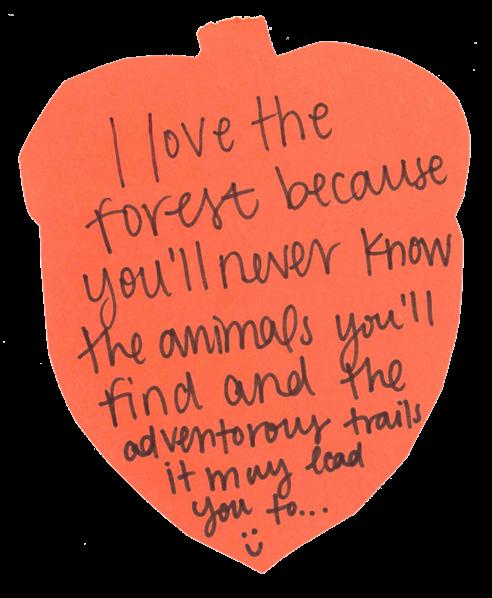 I love the
forest because
you'll never know
the animals you'll
find and the
adventorous trails
it may lead
you to...